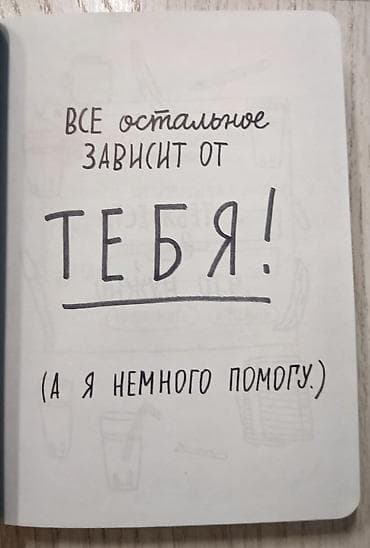 ВСЕ остальное
ЗАВИСИТ ОТ
ТЕБЯ!
(А Я НЕМНОГО ПОМОГУ.)